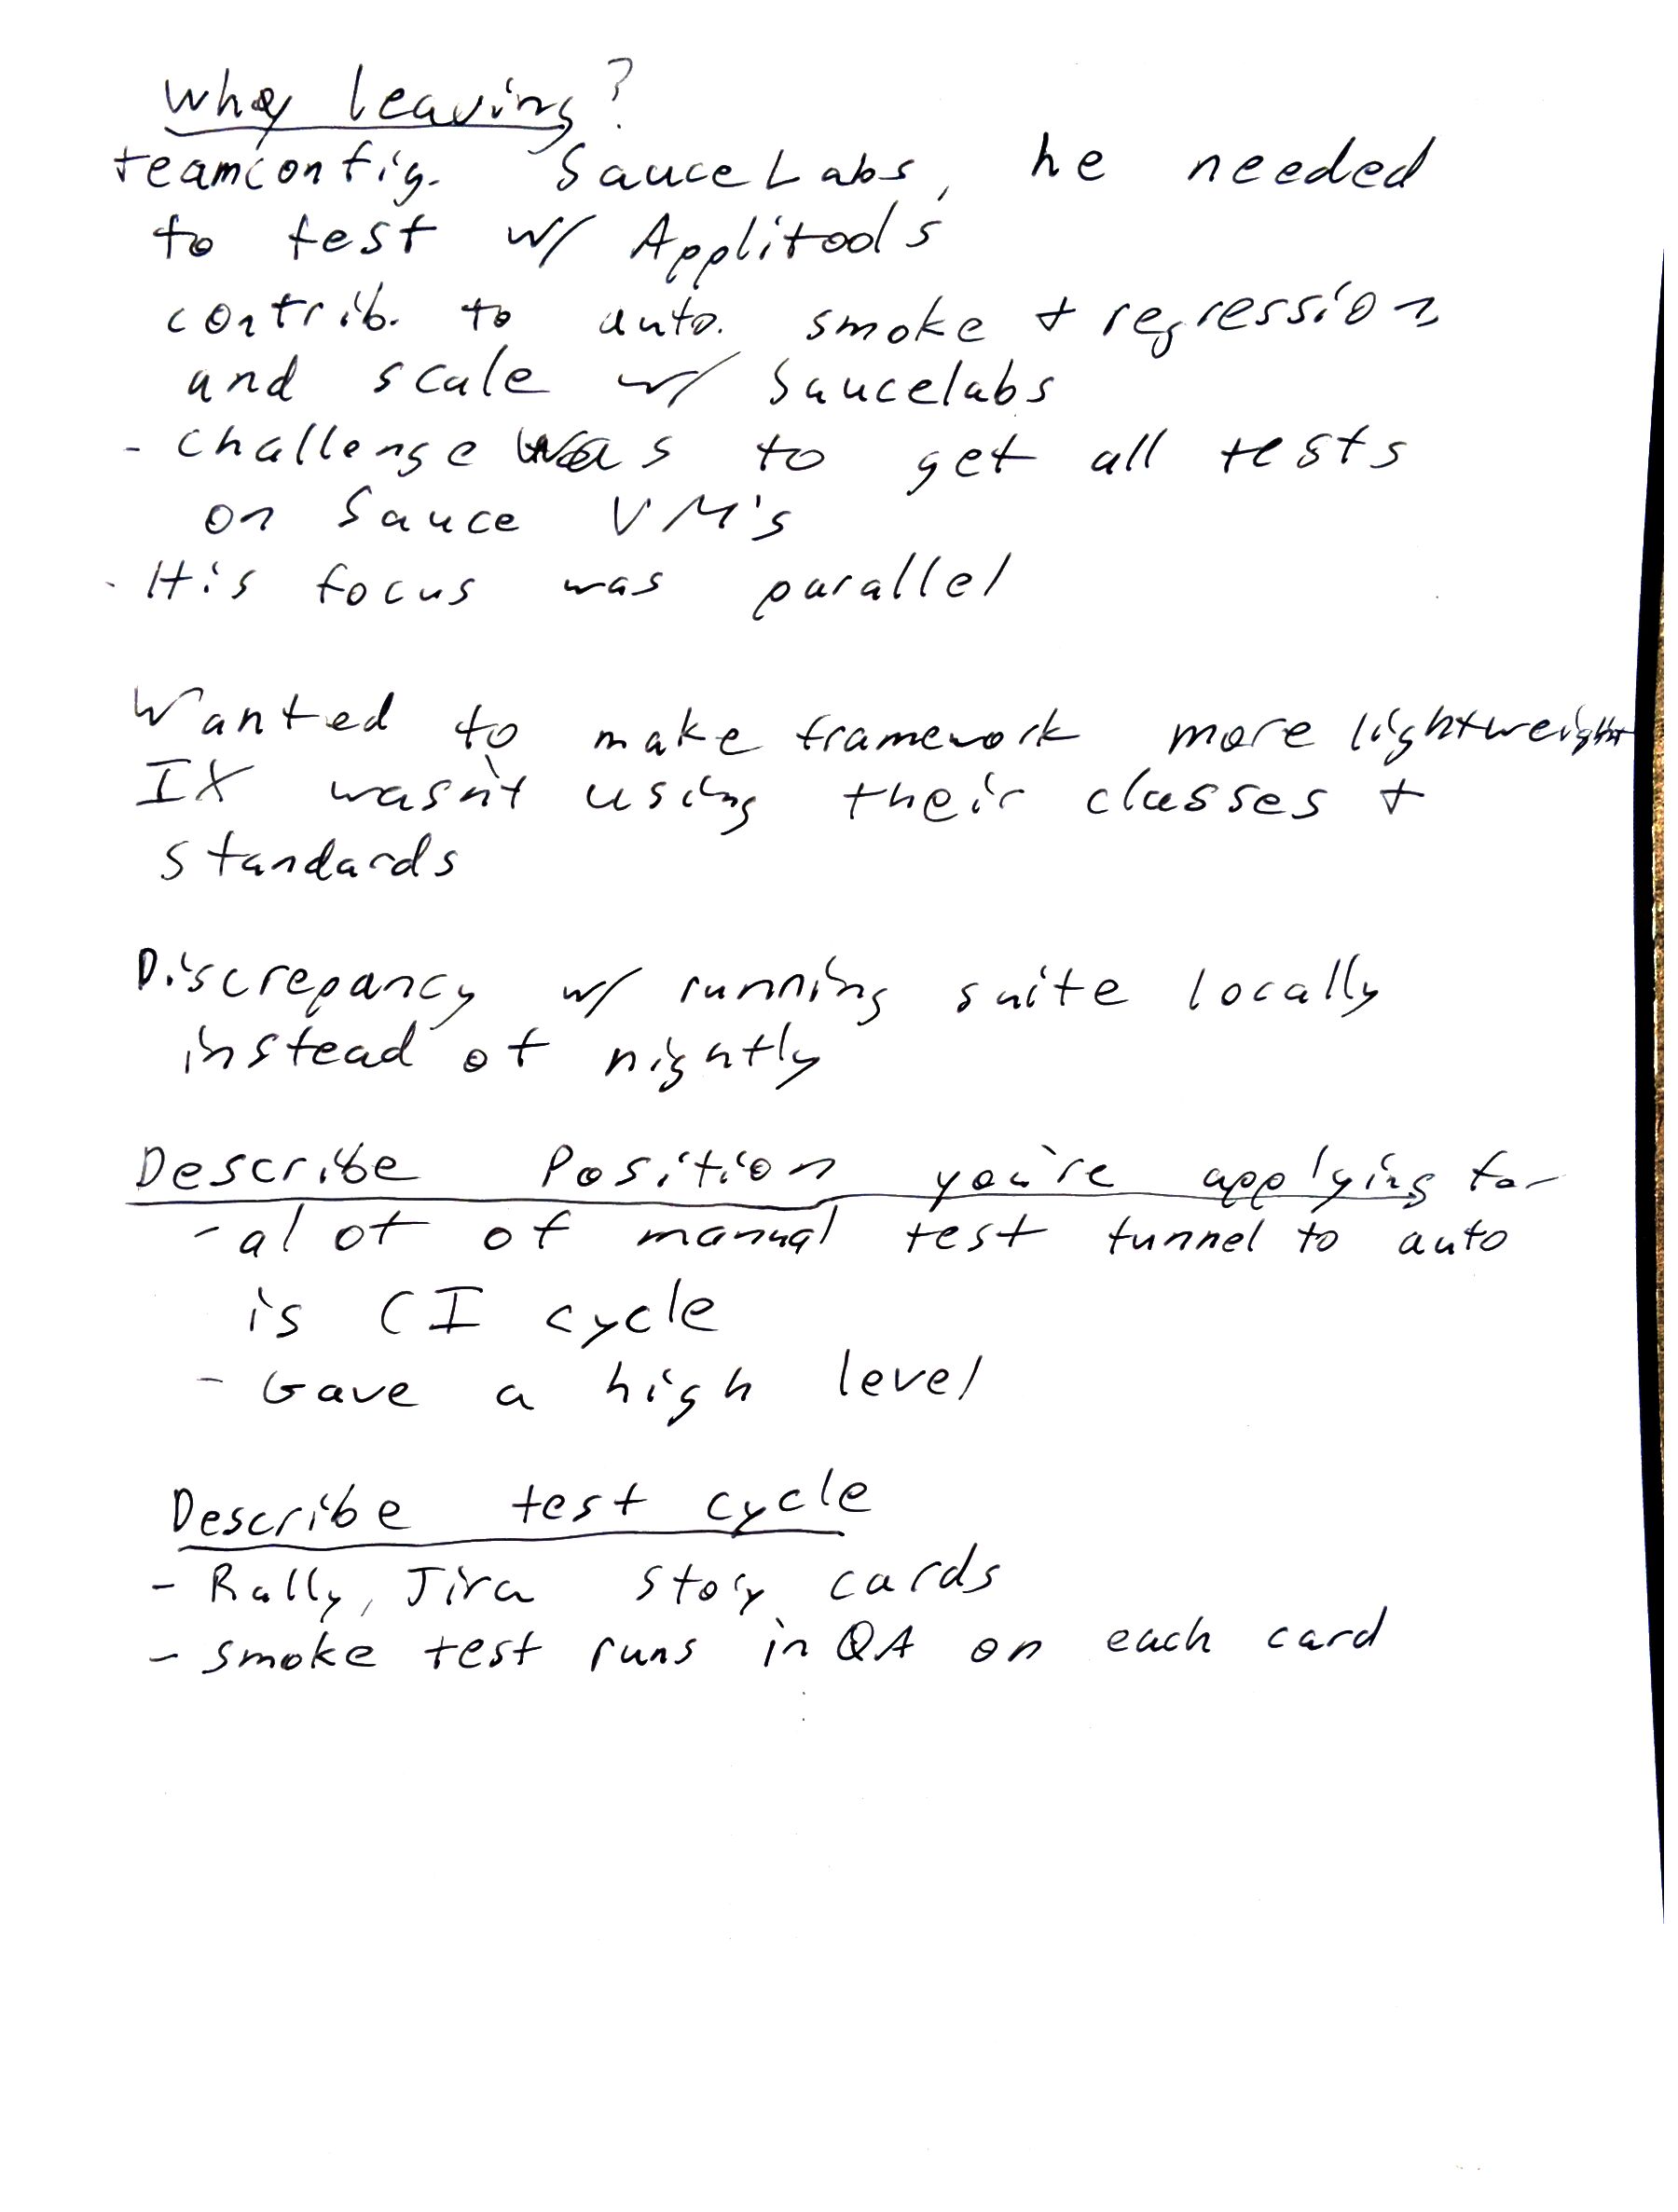 Why leaving?
teamconfig. SauceLabs, he needed
to test w/ Applitools
contrib. to auto. smoke + regression
and scale w/ Saucelabs
- challenge was to get all tests
on Sauce VM's
- His focus was parallel
Wanted to make framework more lightweight
IX wasn't using their classes +
standards
Discrepancy w/ running suite locally
instead of nightly
Describe Position you're applying for
- alot of manual test tunnel to auto
is CI cycle
- Gave a high level
Describe test cycle
- Rally, Jira story cards
- smoke test runs in QA on each card